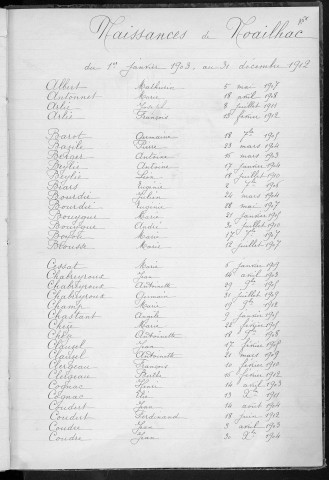 Naissances de Noailhac
du 1er janvier 1903 au 31 décembre 1912
Albert Mathurin 5 mai 1907
Antonnet Marie 18 avril 1908
Artie 8 juillet 1911
Artie François 13 février 1912
Barot Germaine 18 7bre 1905
Bazile Pierre 23 mars 1904
Berger Antoine 15 mars 1903
Beylie Antoine 17 janvier 1904
Beylie Léon 18 juillet 1910
Biars Eugénie 2 1905
Bourdié Julien 24 mars 1904
Bourdié Eugénie 28 mai 1907
Bouygue Maria 21 janvier 1905
Bouygue André 30 juillet 1910
Bouyou Marie 17 1907
Brousse Marie 12 juillet 1907
Cossat Marie 5 janvier 1909
Chabeyroux Jean 14 avril 1903
Chabeyroux Antoinette 29 9bre 1905
Chabeyroux Germain 31 juillet 1909
Champ Marie 19 1912
Chastant Angèle 9 janvier 1905
Chèze Marie 22 février 1905
Chèze Antoinette 18 1908
Clauzel Jean 17 février 1908
Clauzel Antoinette 21 mars 1909
Clergeau François 10 février 1910
Clergeau 15 février 1912
Cognac 14 avril 1903
Cognac Elie 13 Xbre 1910
Coudert Jean 14 août 1904
Coudert Ferdinand 18 juin 1912
Coudre Jean 3 avril 1903
Coudre Jean 30 Xbre 1904